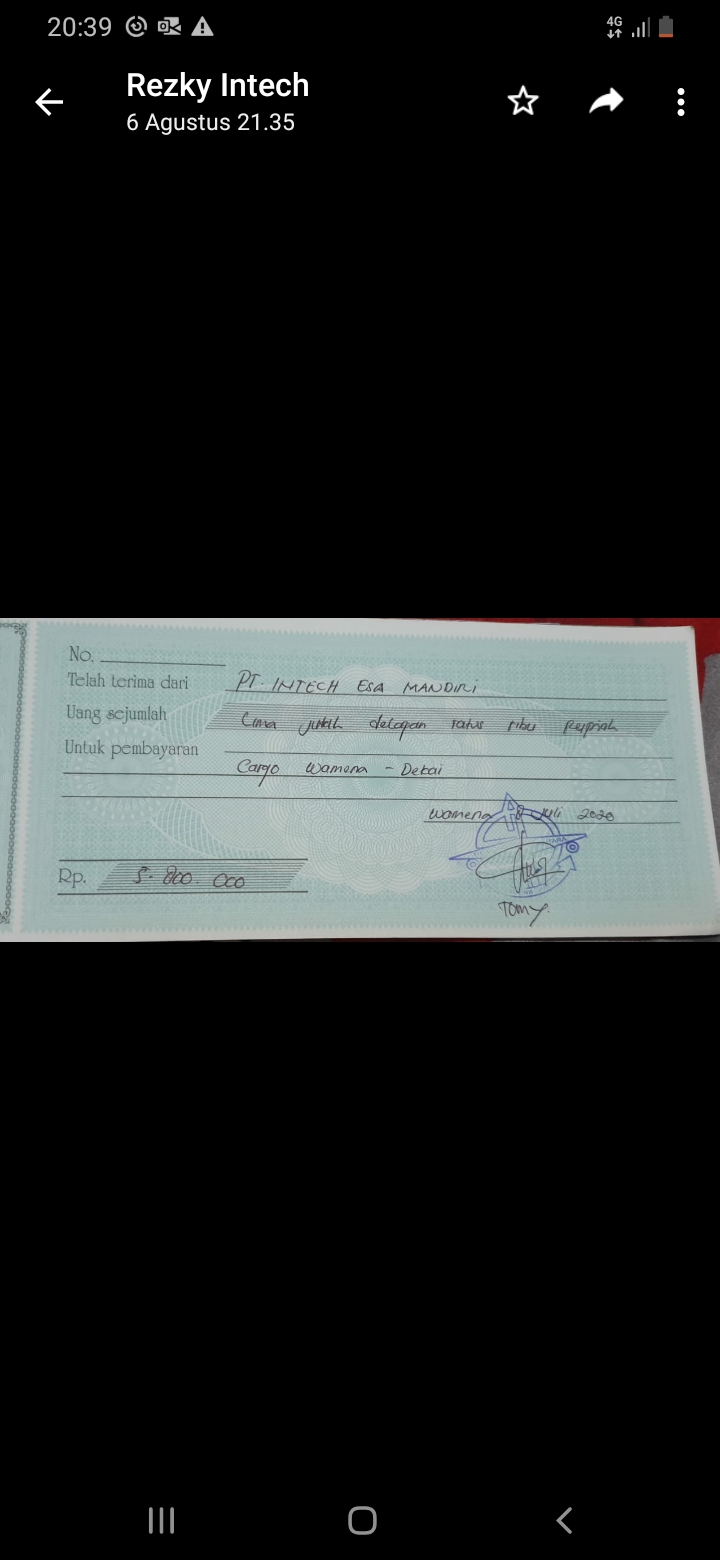 20:39
4G
Rezky Intech
6 Agustus 21.35
No.
Telah terima dari PT. INTECH ESA MANDIRI
Uang sejumlah Lima jutah delapan ratus ribu Rupiah
Untuk pembayaran
Cargo Wamena - Dekai
Wamena Juli 2020
Rp. 5.800.000
Tomy.